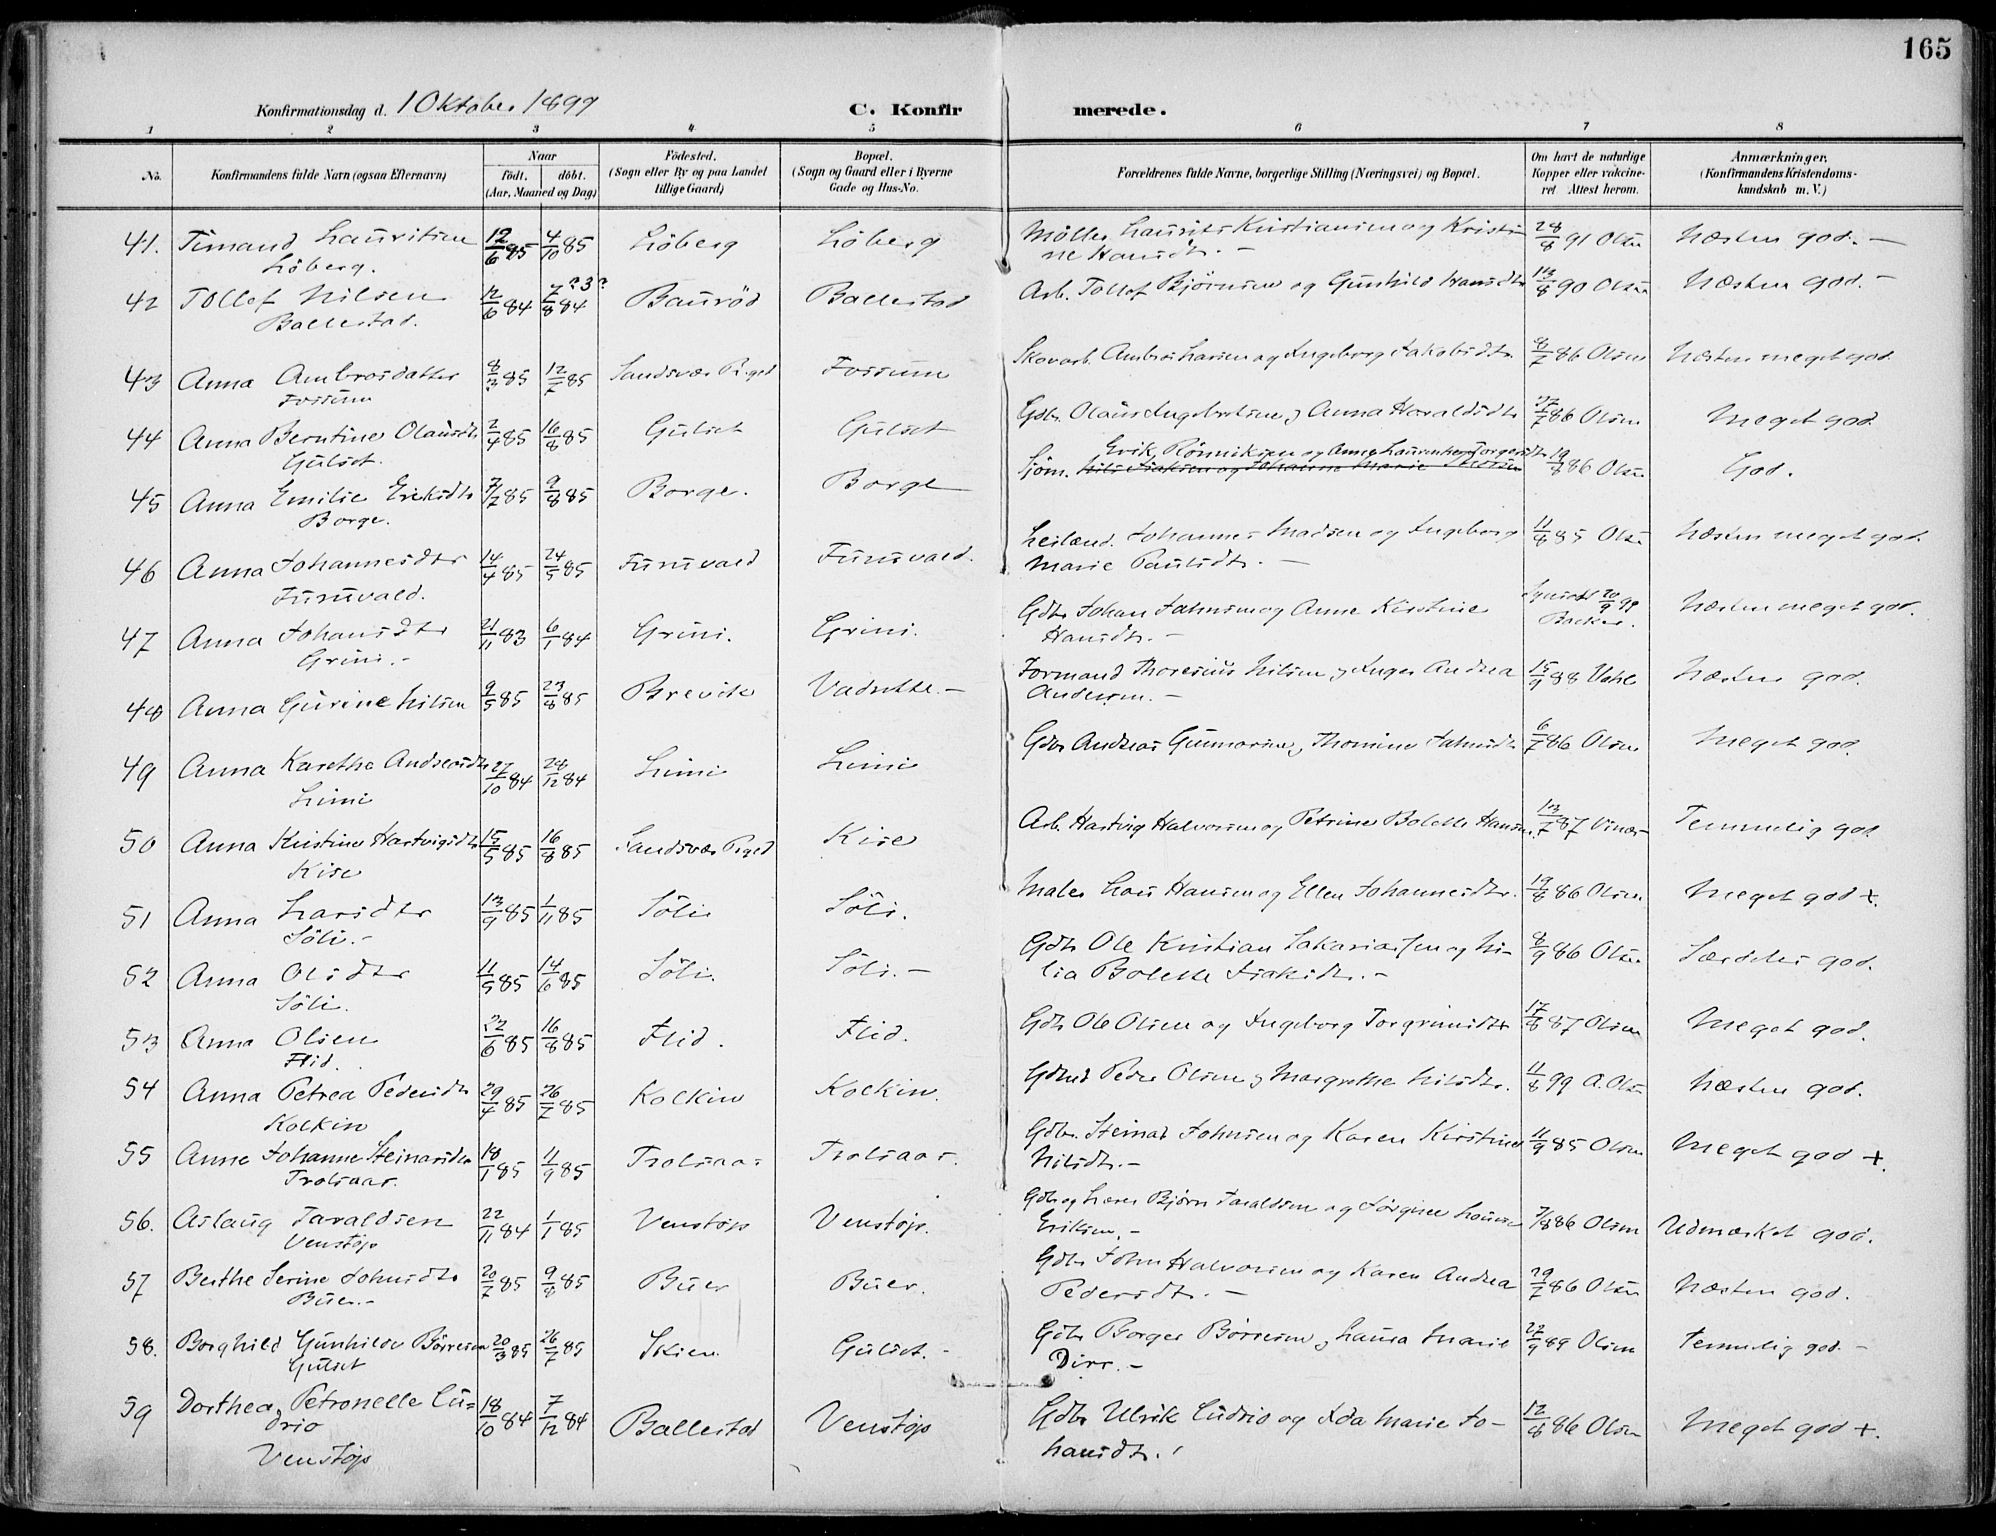 165
Konfirmationsdag d. 1 Oktober 1899 C. Konfirmerede.
1 2 3 4 5 6 7 8
No. Konfirmandens fulde Navn (ogsaa Efternavn) Naar födt. döbt. (Aar, Maaned og Dag) Födested. (Sogn eller By og paa Landet tillige Gaard) Bopæl. (Sogn og Gaard eller i Byerne Gade og Hus-No. Forældrenes fulde Navne, borgerlige Stilling (Næringsvei) og Bopæl. Om havt de naturlige Kopper eller vakcineret Attest herom. Anmærkninger. (Konfirmandens Kristendomskundskab m. V.)
41. Timand Lauritsen 12/6 85 4/10 85 Löberg Löberg Möller Laurits Kristiansen og Kristi- 28/8 91 Olsen Næsten god. —
Löberg. ne Hansdtr. —
42 Tollef Nilsen 12/6 84 7/8 84 ?3? Baurød Ballestad Arb. Tollef Bjørnsen og Gunhild Hansdtr 13/8 90 Olsen Næsten god. —
Ballestad.
43 Anna Ambrosdatter 8/2 85 12/7 85 Sandsvær Prgd Fossum Skovarb. Ambros Larsen og Ingeborg Jakobsdtr. 8/7 86 Olsen Næsten meget god.
Fossum
44 Anna Berntine Olausdtr 2/4 85 16/8 85 Gulset Gulset Gdbr. Olaus Ingebretsen og Anna Haraldsdtr 27/7 86 Olsen Meget god.
Gulset.
45 Anna Emilie Eriksdtr 7/7 85 9/8 85 Borge. Borge Sjöm. Erik Rönniksen og Anne Laurentze Torgersdtr 19/8 86 Olsen God.
Borge.
46 Anna Johannesdtr 14/4 85 24/5 85 Furuvald Furuvald. Leilænd. Johannes Madsen og Ingeborg 11/8 85 Olsen Næsten meget god.
Furuvald. Marie Paulsdtr. —
47 Anna Johansdtr 21/11 83 6/1 84 Grini. Grini. Gdbr Johan Jahnsen og Anne Kirstine 20/9 99 Backer. Næsten meget god.
Grini. - Hansdtr. —
48 Anna Gurine Nilsen 9/5 85 23/8 85 Brevik Vadrette. — Formand Thoresius Nilsen og Inger Andrea 15/9 88 Næsten god.
Andersen. —
49 Anna Karethe Andreasdtr 27/10 84 28/12 84 Limi Limi Gdbr Andreas Gunnarsen og Thomine Jahnsdtr 6/7 86 Olsen Meget god.
Limi
50 Anna Kristine Hartvigsdtr 15/5 85 16/8 85 Sandsvær Prgd Kise Arb. Hartvig Halvorsen og Petrine Bolette Hansen. 13/7 87 Temmelig god
Kise
51 Anna Larsdtr 13/9 85 1/11 85 Söli Söli. Maler Lars Hansen og Ellen Johannesdtr. 19/8 86 Olsen Meget god +.
Söli. -
52 Anna Olsdtr 11/5 85 14/6 85 Söli. Söli. — Gdbr Ole Kristian Sakariassen og Ni- 8/9 86 Olsen Særdeles god.
Söli. lia Bolette Isaksdtr. -
53 Anna Olsen 22/6 85 16/8 85 Flid. Flid. Gdbr Ole Olsen og Ingeborg Torgrimsdtr 17/8 87 Olsen Meget god.
Flid.
54 Anna Petrea Pedersdtr 29/4 85 26/7 85 Kolkin Kolkin. Gdmd Peder Olsen og Margrethe Nilsdtr. 11/8 99 A. Olsen Næsten god.
Kolkin
55 Anne Johanne Steinarsdtr 18/1 85 11/9 85 Trolsaas Trolsaas. Gdbr. Steinar Johnsen og Karen Kirstine 11/9 85 Olsen Meget god +.
Trolsaas. Nilsdtr. -
56. Aslaug Taraldsen 22/11 84 1/1 85 Venstöp Venstöp. Gdbr og Lærer Björn Taraldsen og Jörgine Louise 7/8 86 Olsen Udmærket god.
Venstöp Eriksen. -
57 Berthe Serine Johnsdtr 20/7 85 9/8 85 Buer Buer. Gdbr John Halvorsen og Karen Andrea 29/7 86 Olsen Næsten god.
Buer. - Pedersdtr. —
58. Borghild Gunhilde Börresen 20/3 85 26/7 85 Skien Gulset. - Gdbr Borger Börresen og Laura Marie 22/9 89 Olsen Temmelig god. -
Gulset Dirr. -
59 Dorthea Petronelle Lu= 18/10 84 7/12 84 Ballestad Venstöp Gdbr Ulrik Ludrio og Ida Marie Jo- 12/8 86 Olsen Meget god +.
drio hansdtr.
Venstöp